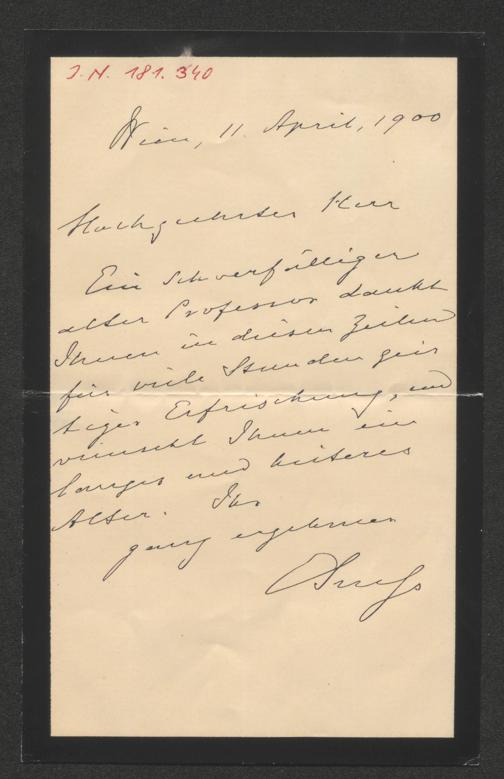 I. N. 181.340
Wien, 11. April, 1900
Hochgeehrter Herr
Ein schwerfälliger
alter Professor dankt
Ihnen in diesen Zeilen
für viele Stunden geis
tiger Erfrischung, und
wünscht Ihnen ein
langes und heiteres
Alter. Ihr
ganz ergebener
ESuess